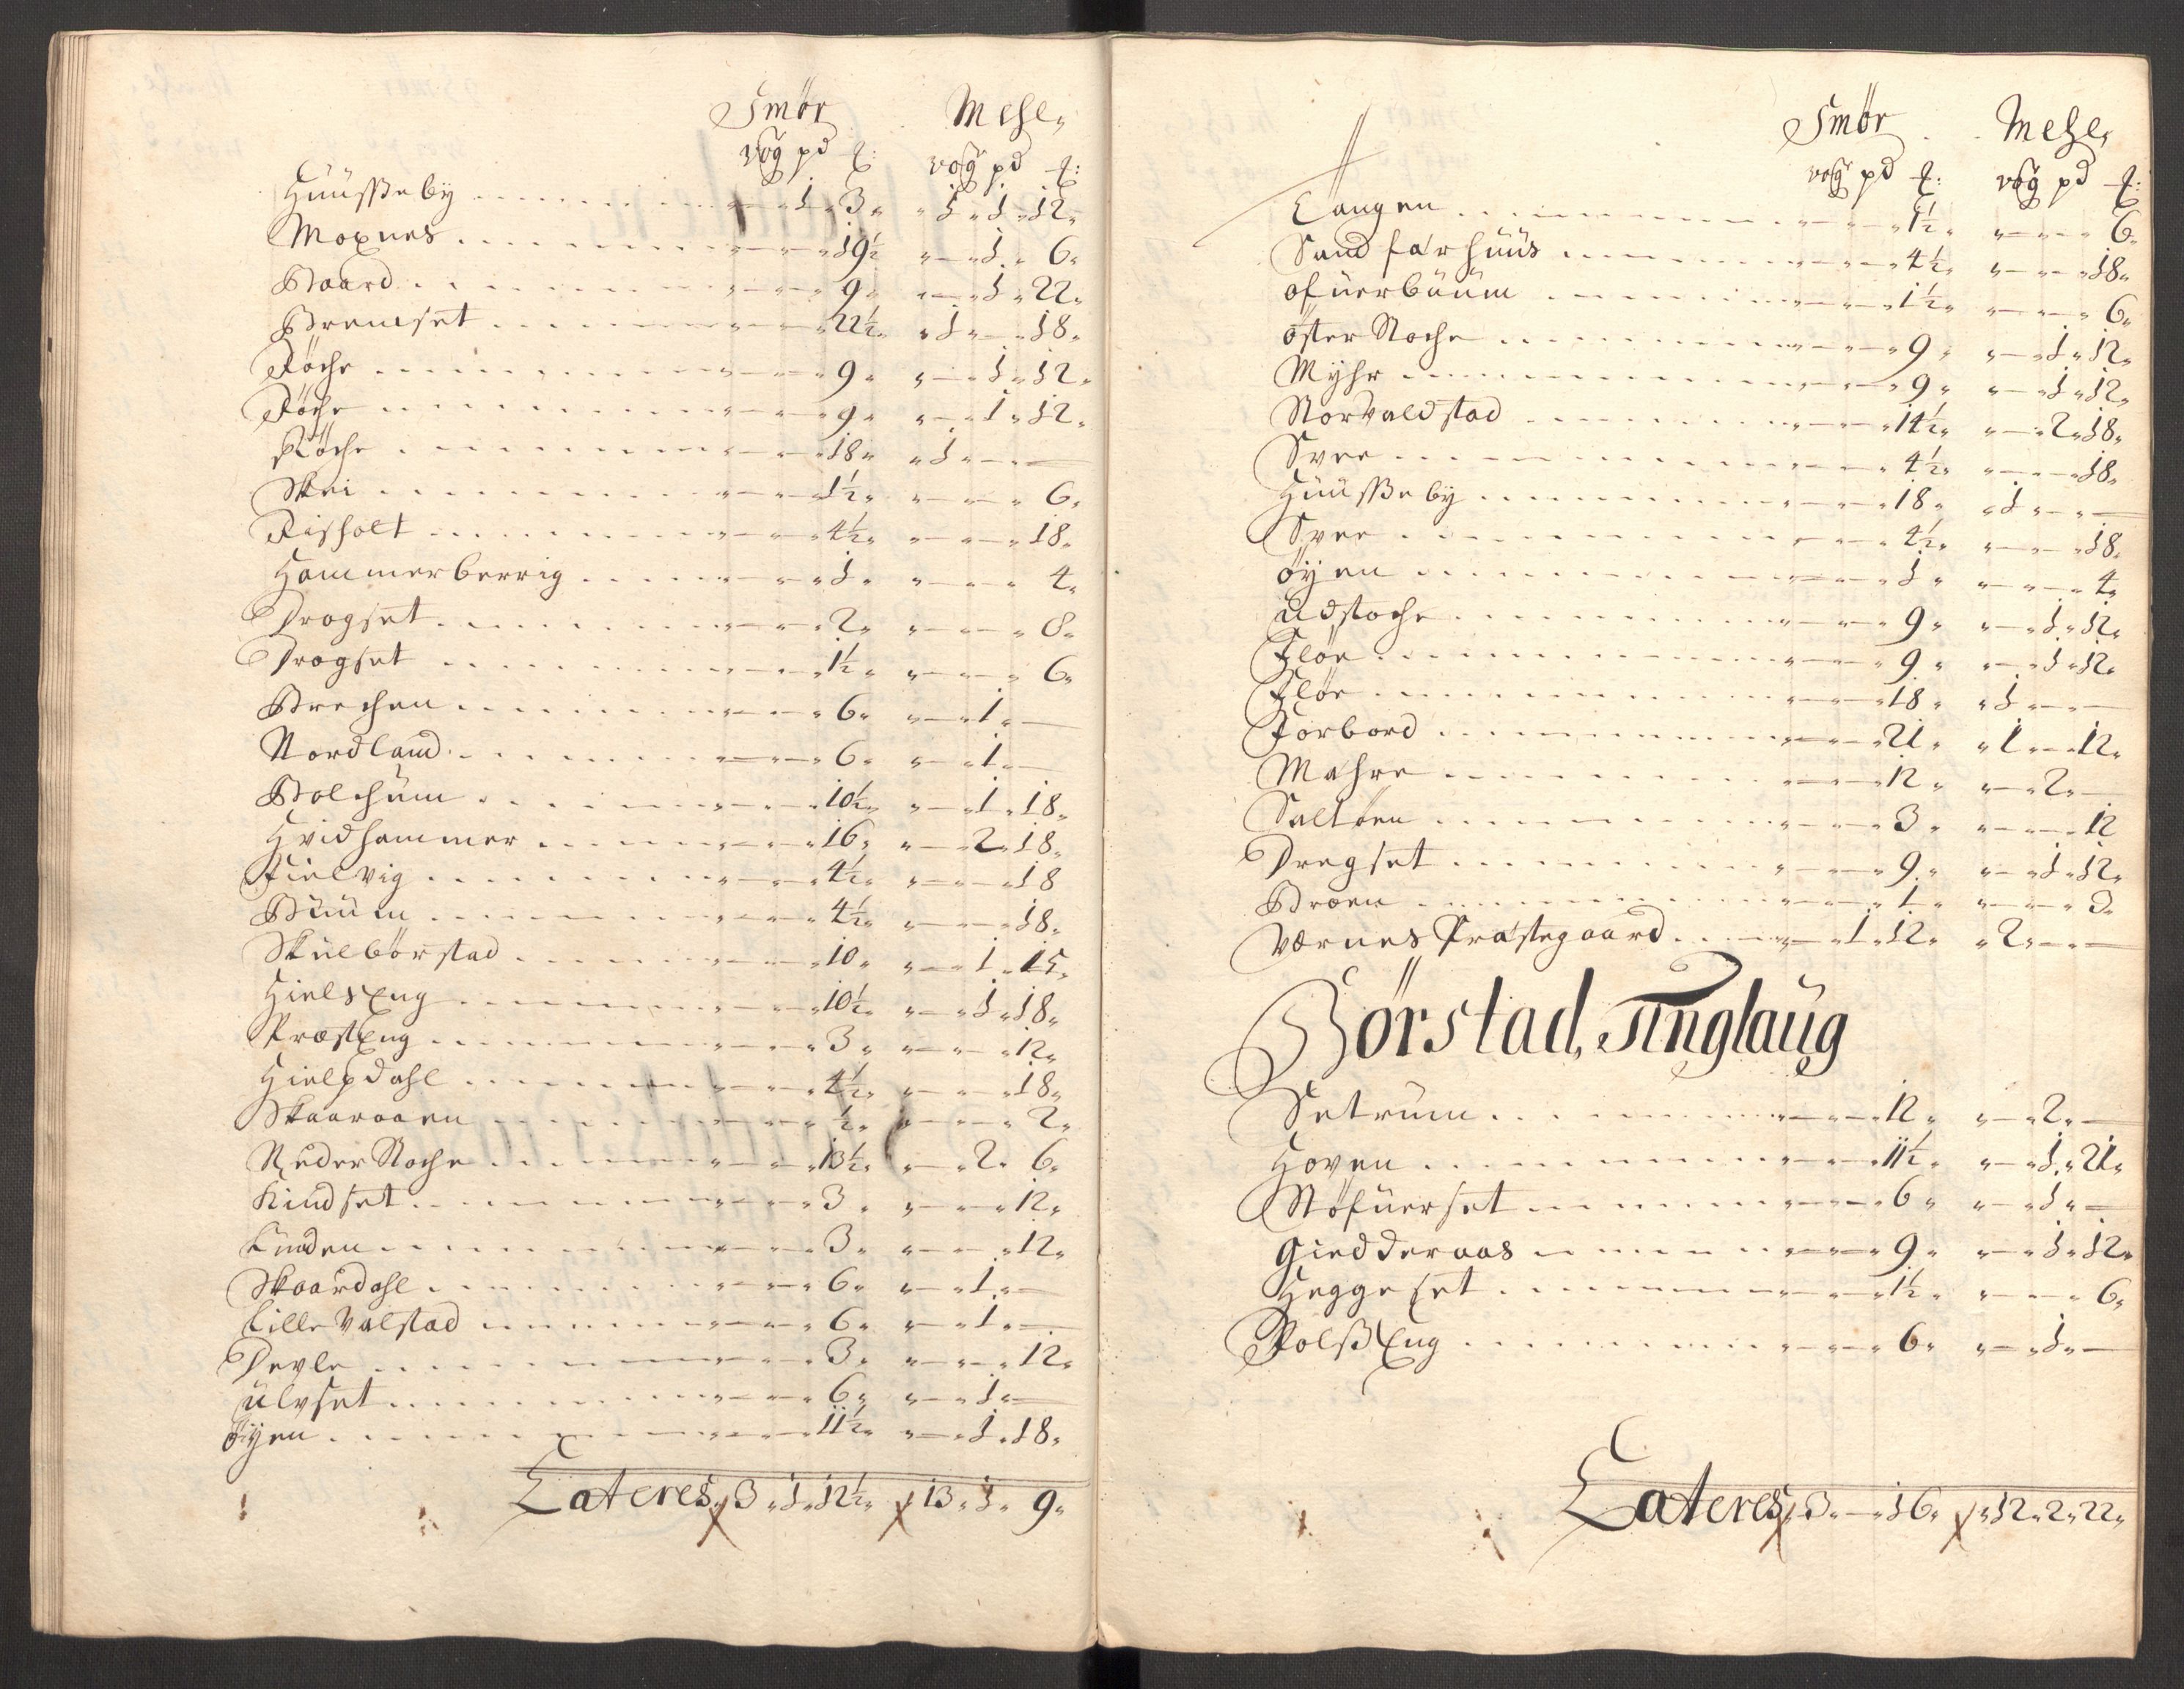 Smör Mehl„
vog pd ℔: vog pd ℔:
Huusseby „ 1 „ 3 „ „ 1 „ 1 „ 12 „
Moxnes „ — „ 19½ „ — „ 1 „ 6 „
Baard „ — „ 9 „ „ — „ 1 „ 22 „
Bremset „ — „ 22½ „ „ 1 „ — „ 18 „
Röche „ — „ 9 „ „ — „ 1 „ 12 „
Röche „ — „ 9 „ „ — „ 1 „ 12 „
Röche „ — „ 18 „ „ 1 „ — „ —
Skei „ — „ 1½ „ „ — „ — „ 6 „
Risholt „ — „ 4½ „ „ — „ — „ 18 „
Hammerberrig „ — „ 1 „ „ — „ — „ 4 „
Drogset „ — „ 2 „ „ — „ — „ 8 „
Drogset „ — „ 1½ „ „ — „ — „ 6 „
Brechen „ — „ 6 „ „ — „ 1 „ —
Nordland „ — „ 6 „ „ — „ 1 „ —
Bolchum „ — „ 10½ „ „ — „ 1 „ 18 „
Hvidhammer „ — „ 16 „ „ — „ 2 „ 18 „
Fielvig „ — „ 4½ „ „ — „ — „ 18
Buum „ — „ 4½ „ „ — „ — „ 18 „
Skulbörstad „ — „ 10 „ „ — „ 1 „ 15 „
Hiels Eng „ — „ 10½ „ „ — „ 1 „ 18 „
PræstEng „ — „ 3 „ „ — „ — „ 12 „
Hielpdahl „ — „ 4½ „ „ — „ — „ 18 „
Skaaroaen „ — „ ½ „ „ — „ — „ 2 „
Neder Stoche „ — „ 13½ „ „ — „ 2 „ 6 „
Kindset „ — „ 3 „ „ — „ — „ 12 „
Lunden „ — „ 3 „ „ — „ — „ 12 „
Skaardahl „ — „ 6 „ „ — „ 1 „ —
Lille Valstad „ — „ 6 „ „ — „ 1 „ —
Devle „ — „ 3 „ „ — „ — „ 12 „
Ulvset „ — „ 6 „ „ — „ 1 „ —
öÿen „ — „ 11½ „ „ — „ 1 „ 18 „
Lateres „ 3 „ 1 „ 12½ „ 13 „ 1 „ 9 „
Smör Mehl„
vog pd ℔: vog pd ℔:
Langen „ — „ 1½ „ „ — „ — „ 6 „
Sandfærhuus „ — „ 4½ „ „ — „ — „ 18 „
ofuerbuum „ — „ 1½ „ „ — „ — „ 6 „
öster Stoche „ — „ 9 „ „ — „ 1 „ 12 „
Myhr „ — „ 9 „ „ — „ 1 „ 12 „
Storvaldstad „ — „ 14½ „ „ — „ 2 „ 18 „
Svee „ — „ 4½ „ „ — „ — „ 18 „
Huusseby „ — „ 18 „ „ 1 „ — „ —
Svee „ — „ 4½ „ „ — „ — „ 18 „
öÿen „ — „ 1 „ „ — „ — „ 4 „
udstoche „ — „ 9 „ „ — „ 1 „ 12 „
Flöe „ — „ 9 „ „ — „ 1 „ 12 „
Flöe „ — „ 18 „ „ 1 „ — „ —
Forbord „ — „ 21 „ „ 1 „ — „ 12 „
Mahre „ — „ 12 „ „ — „ 2 „ —
Saltöen „ — „ 3 „ „ — „ — „ 12
Dregset „ — „ 9 „ „ — „ 1 „ 12 „
Broen „ — „ 1 „ „ — „ — „ 3 „
Værnes Præstegaard „ 1 „ 12 „ „ 2 „ — „ —
Börstad, Tinglaug
Setrum „ — „ 12 „ „ — „ 2 „ —
Hoven „ — „ 11½ „ „ — „ 1 „ 21 „
Stöfuerset „ — „ 6 „ „ — „ 1 „ —
Giedderaas „ — „ 9 „ „ — „ 1 „ 12 „
Heggeset „ — „ 1½ „ „ — „ — „ 6 „
Polß Eng „ — „ 6 „ „ — „ 1 „ —
Lateres „ 3 „ — „ 16 „ „ 12 „ 2 „ 22 „